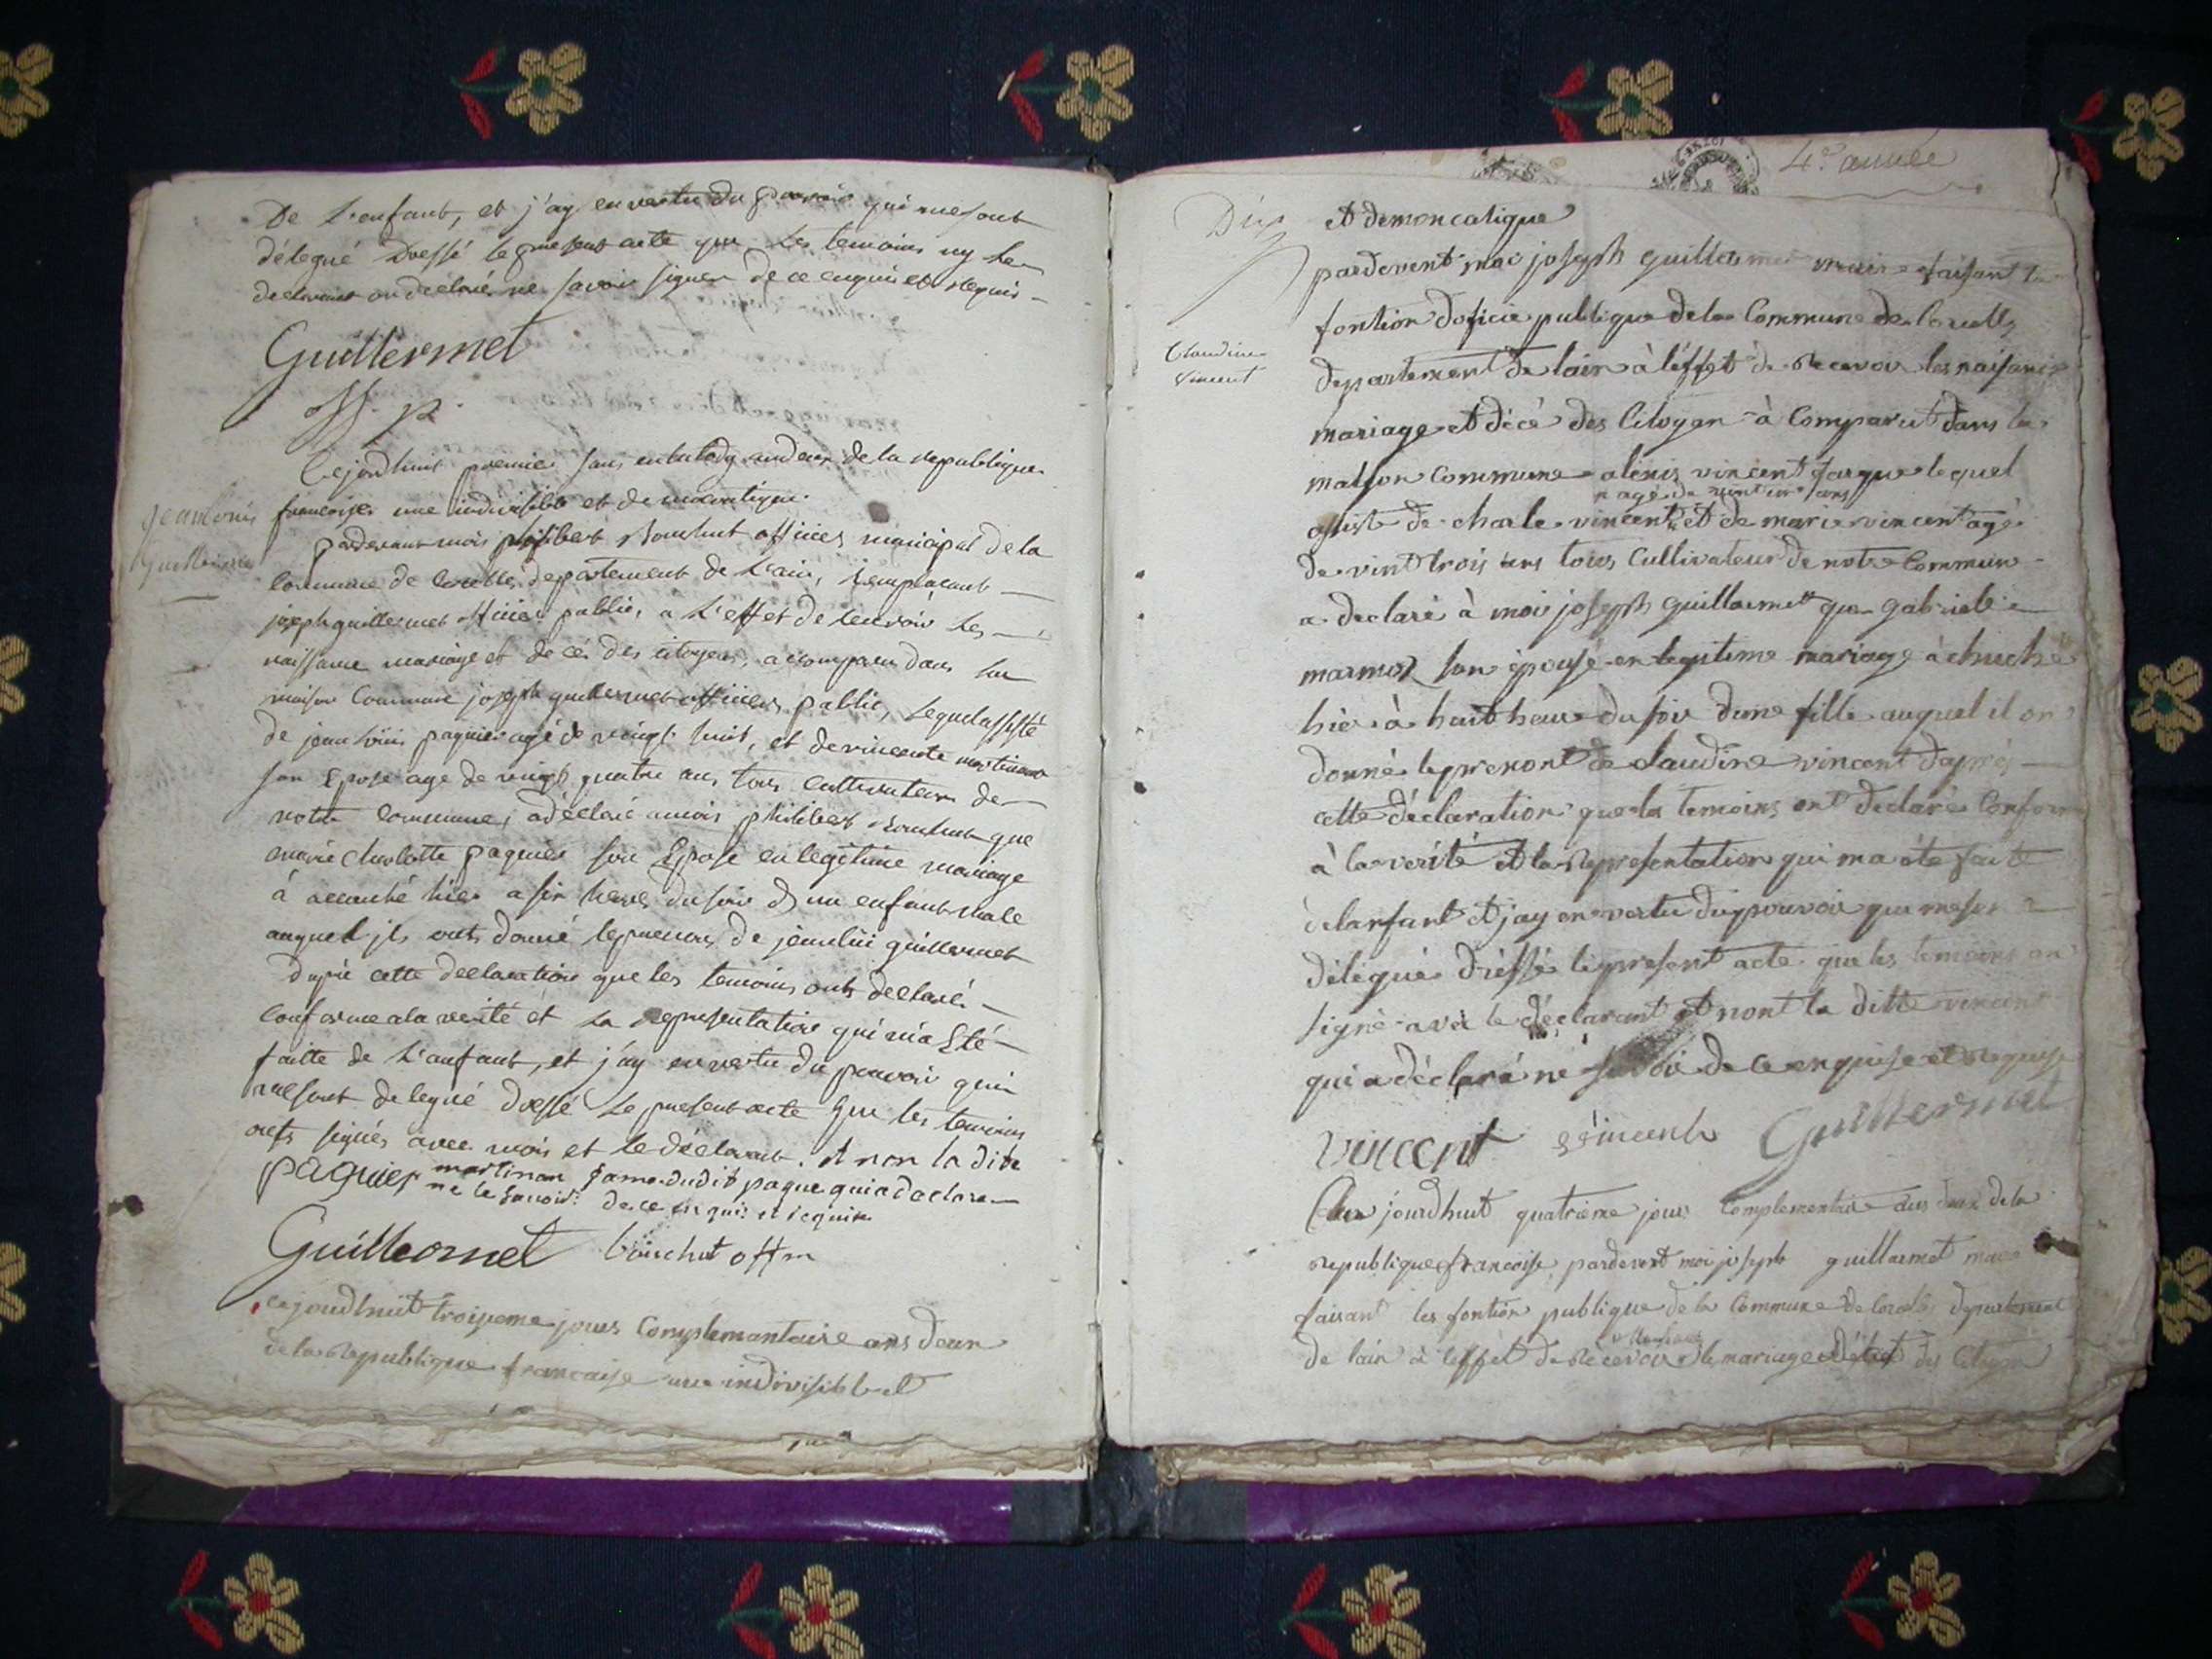 De L'enfant, et j'ay en vertu du pouvoir qui me sont
délegué Dressé le present acte que les temoins ny le
declarant on declaré ne savoir signer de ce enquis et requis
Guillermet
off. p.
Jean louis
guillermet
Cejordhuit premier sans culotdg an deux de la republique
francoise une indivisible et democratique
pardevant mois philibert Bouchut officier municipal de la
Commune de Corcelles departement de L'ain, remplacant
joseph guillermet officier public, a L'effet de recevoir Les
naissance mariage et decé des citoyens, a comparu dans La
maison Commune joseph guillermet officier public, Lequel assisté
de jean louis paquier agé de vingt huit, et de vincente martinand
son Epose age de vingt quatre ans tous Cultivateur de
notre Commune, a déclaré a mois philibert Bouchut que
marie Charlotte paquier son Epose en legitime mariage
à accouché hier a six heures du soir d'un enfant male
auquel jls onts donné le prenom de jean loui guillermet
dapré cette declaration que les temoins onts declaré
Conforme a la verité et La representation qui m'a Eté
faitte de L'anfant, et j'ay en vertu du pouvoir qui
me sont delegué dressé Le present acte que les temoins
onts signés avec mois et le déclarant. et non la dite
paquier martinan fame dudit paque qui a daclare
ne le savoir de ce enquis et requise
Guillermet bouchut off m
cejourdhuit troisieme jours Complemantaire ans deux
de la Republique francaise une indivisible et
4e année
Dix
et demoncatique
pardevent moi joseph guillermet maire faisant la
fontion doficie publique de la Commune de Corcelle
Claudine
vincent
departement de lain à l'effet de Recevoir les naisance
mariage et décè des Citoyen à Comparut dans la
maison Commune alexis vincent lequel
n agé de vint ans
assisté de charle vincent et de marie vincent agé
de vint trois ans tous Cultivateur de notre Commune
a declaré à moi joseph guillermet que gabrielle
marmos son épouse en legitime mariage à
hier à huit heure du soir dune fille auquel il on
donné le prenont de claudine vincent daprés
cette déclaration que la temoins ont declaré Conforme
à la verité et la Representation qui ma été faite
de lanfant et jay en vertu du pouvoir qui me son
délégué dréssé le present acte que les temoins on
signé avec le déclarant et nont la ditte vincent
qui a déclaré ne savoir de ce enquise et Requise
vincent vincent Guillermet
Cejourdhuit quatrieme jours Complementaire ans deux de la
republique francoise pardevent moi joseph guillermet maire
faisant les fontion publique de la Commune de Corcelle departement
de lain à l'effet de Recevoir le mariage et décé des Citoyen